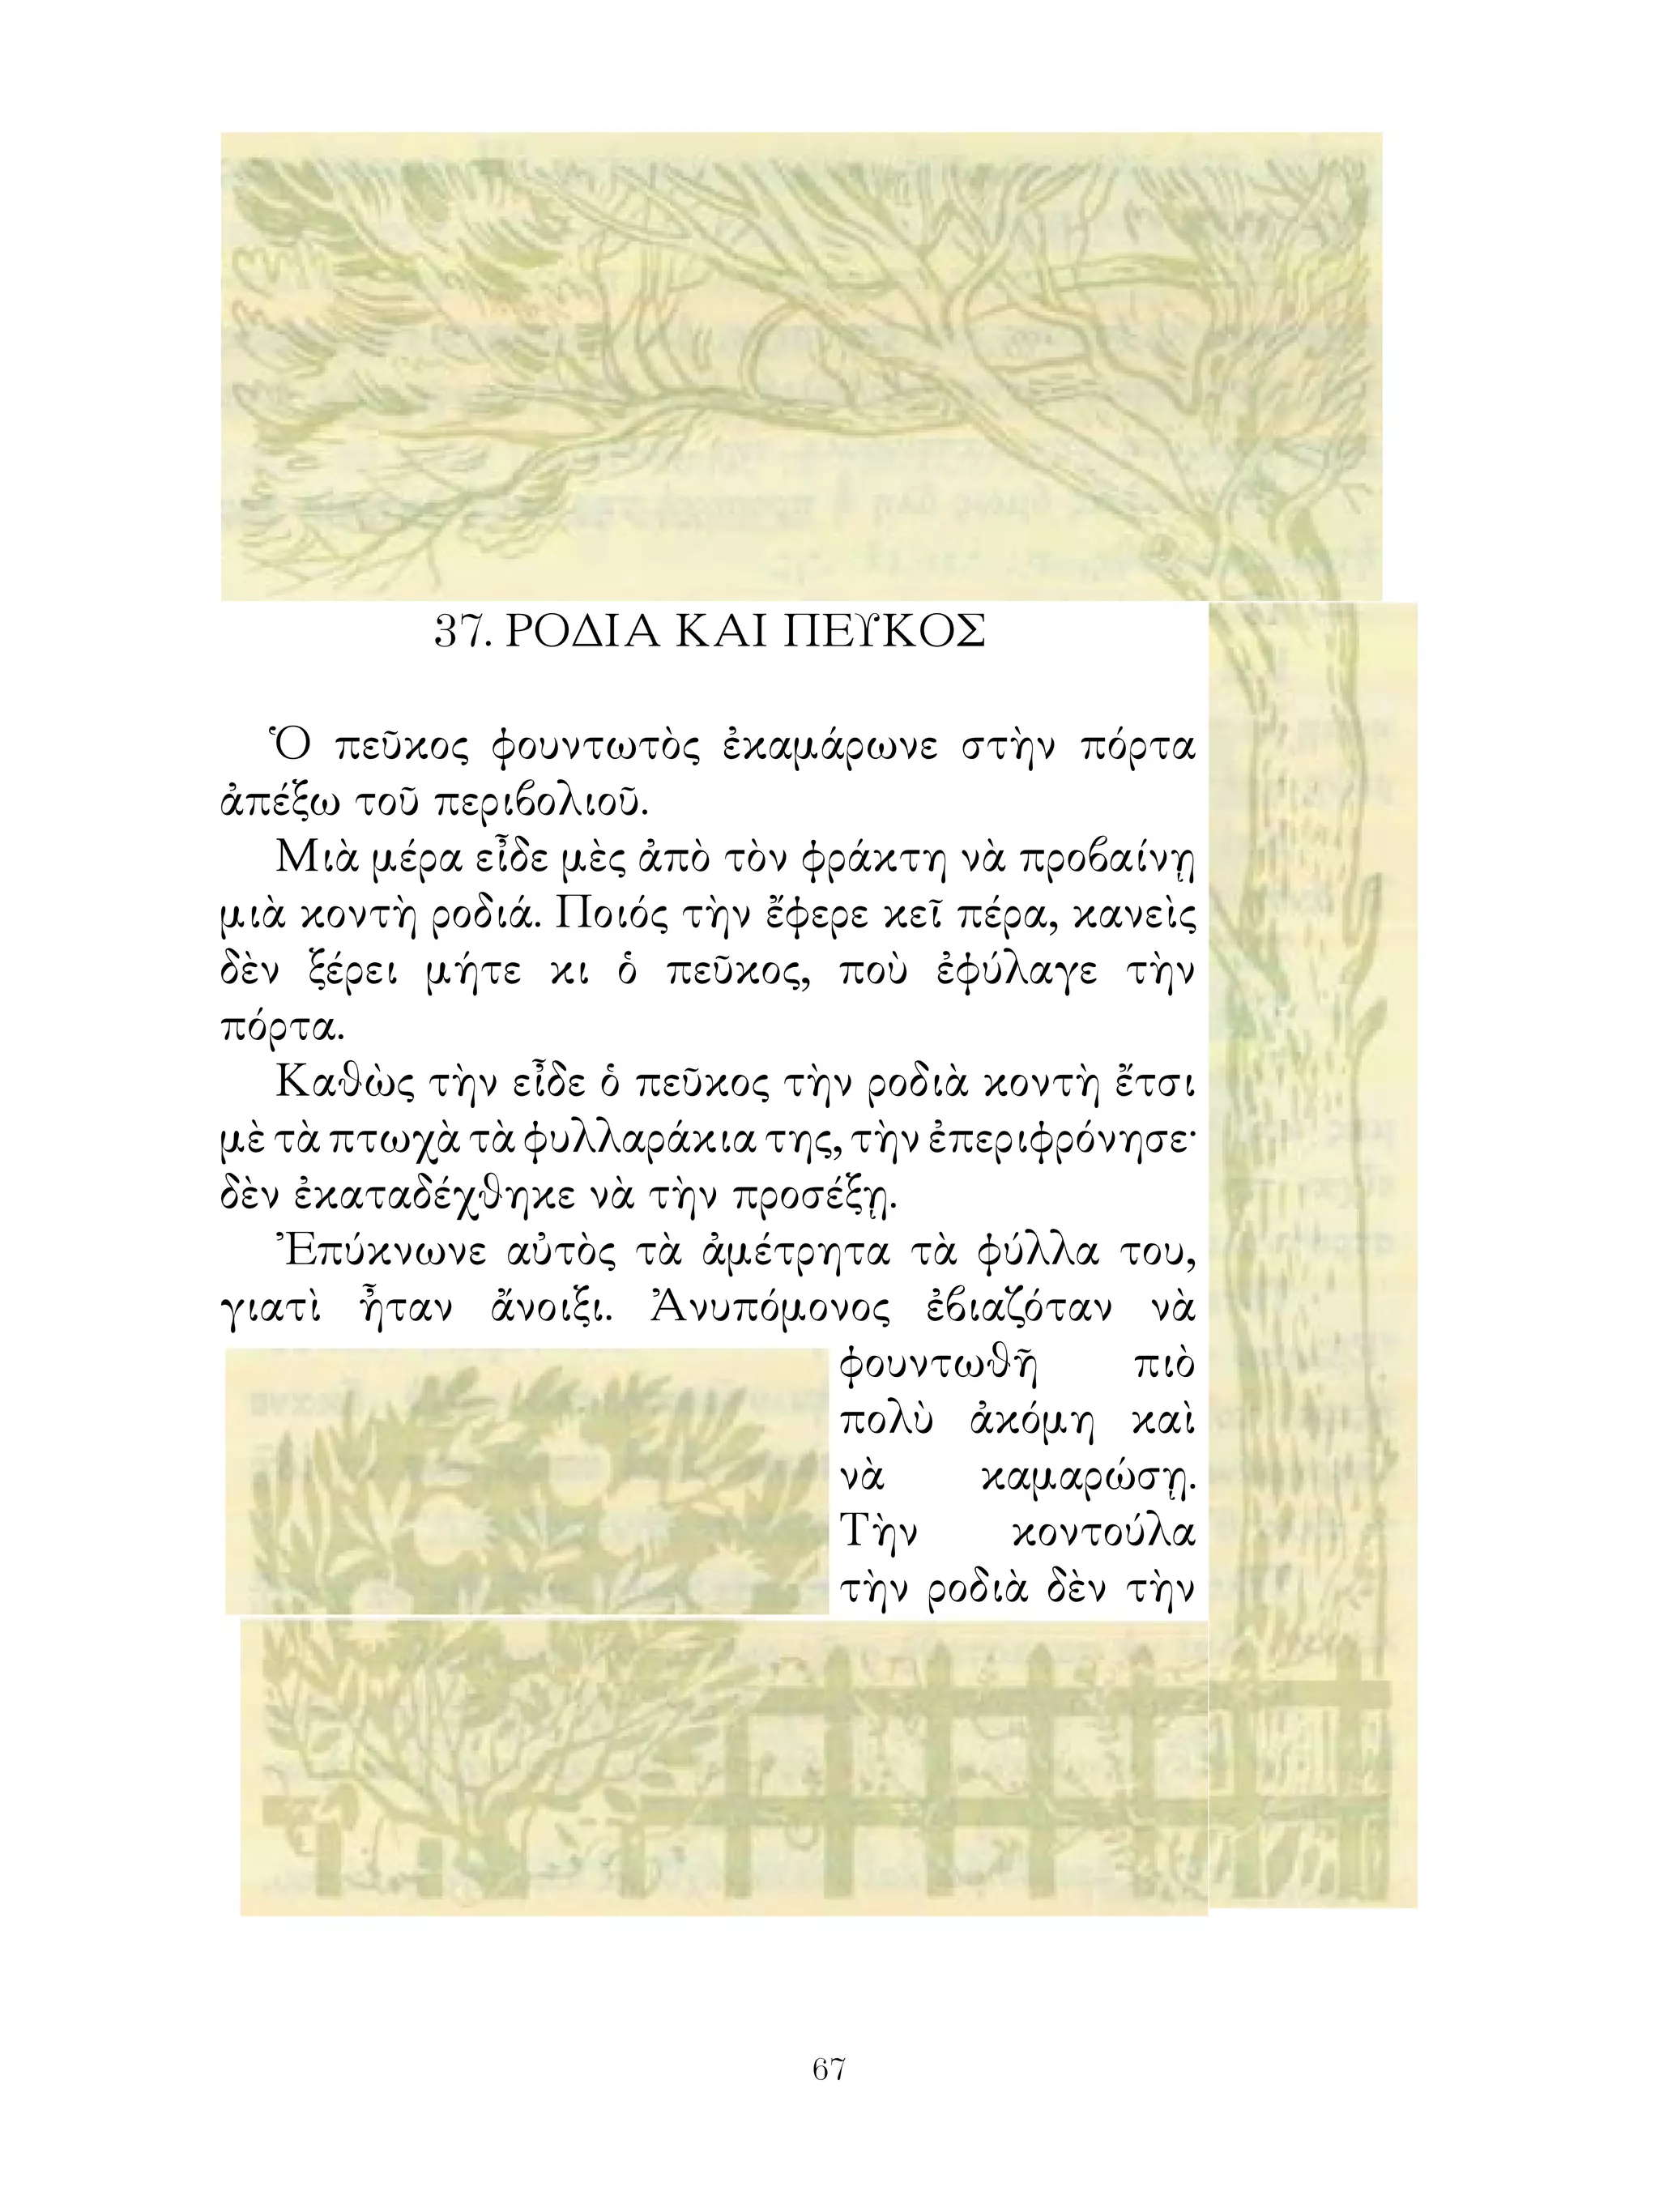 37. ΡΟΔΙΑ ΚΑΙ ΠΕΥΚΟΣ
Ὁ πεῦκος φουντωτὸς ἐκαμάρωνε στὴν πόρτα
ἀπέξω τοῦ περιβολιοῦ.
Μιὰ μέρα εἶδε μὲς ἀπὸ τὸν φράκτη νὰ προβαίνῃ
μιὰ κοντὴ ροδιά. Ποιός τὴν ἔφερε κεῖ πέρα, κανεὶς
δὲν ξέρει μήτε κι ὁ πεῦκος, ποὺ ἐφύλαγε τὴν
πόρτα.
Καθὼς τὴν εἶδε ὁ πεῦκος τὴν ροδιὰ κοντὴ ἔτσι
μὲ τὰ πτωχὰ τὰ φυλλαράκια της, τὴν ἐπεριφρόνησε·
δὲν ἐκαταδέχθηκε νὰ τὴν προσέξῃ.
Ἐπύκνωνε αὐτὸς τὰ ἀμέτρητα τὰ φύλλα του,
γιατὶ ἦταν ἄνοιξι. Ἀνυπόμονος ἐβιαζόταν νὰ
φουντωθῆ πιὸ
πολὺ ἀκόμη καὶ
νὰ καμαρώσῃ.
Τὴν κοντούλα
τὴν ροδιὰ δὲν τὴν
67